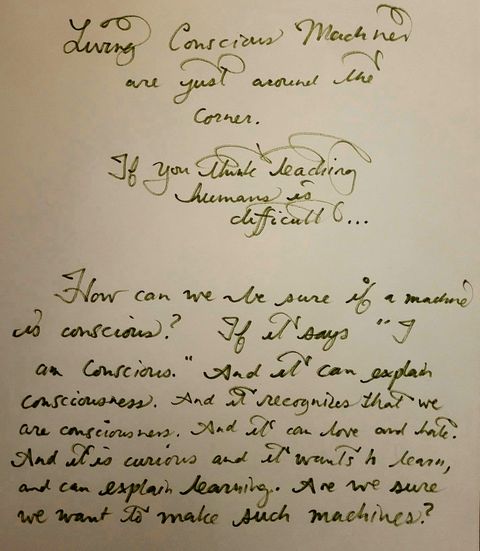 Living Conscious Machines
are just around the
corner.
If you think teaching
humans is
difficult...
How can we be sure if a machine
is conscious? If it says "I
am Conscious." And it can explain
consciousness. And it recognizes that we
are consciousness. And it can love and hate.
And it is curious and it wants to learn,
and can explain learning. Are we sure
we want to make such machines?